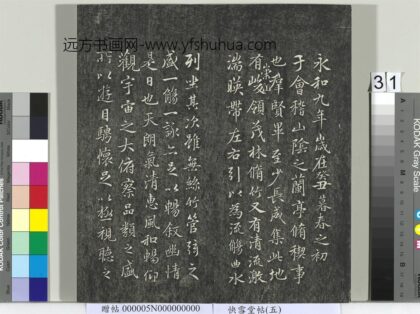 远方书画网-www.yfshuhua.com
永和九年歲在癸丑暮春之初
于會稽山陰之蘭亭脩稧事
也羣賢畢至少長咸集此地
有峻領茂林脩竹又有清流激
湍暎帶左右引以為流觴曲水
列坐其次雖無絲竹管弦之
盛一觴一詠亦足以暢敘幽情
是日也天朗氣清惠風和暢仰
觀宇宙之大俯察品類之盛
所以遊目騁懷足以極視聽之
31
KODAK Gray Scale
贈帖 000005N000000000
快雪堂帖(五)